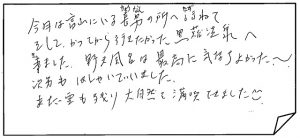 今月は富山にいる長男の所へ訪ねて
そして、かつてから行きたかった黒薙温泉へ
来ました。野天風呂は最高に気持よかった〜
次男もはしゃいでいました。
まだ雪も残り大自然を満喫できました☺